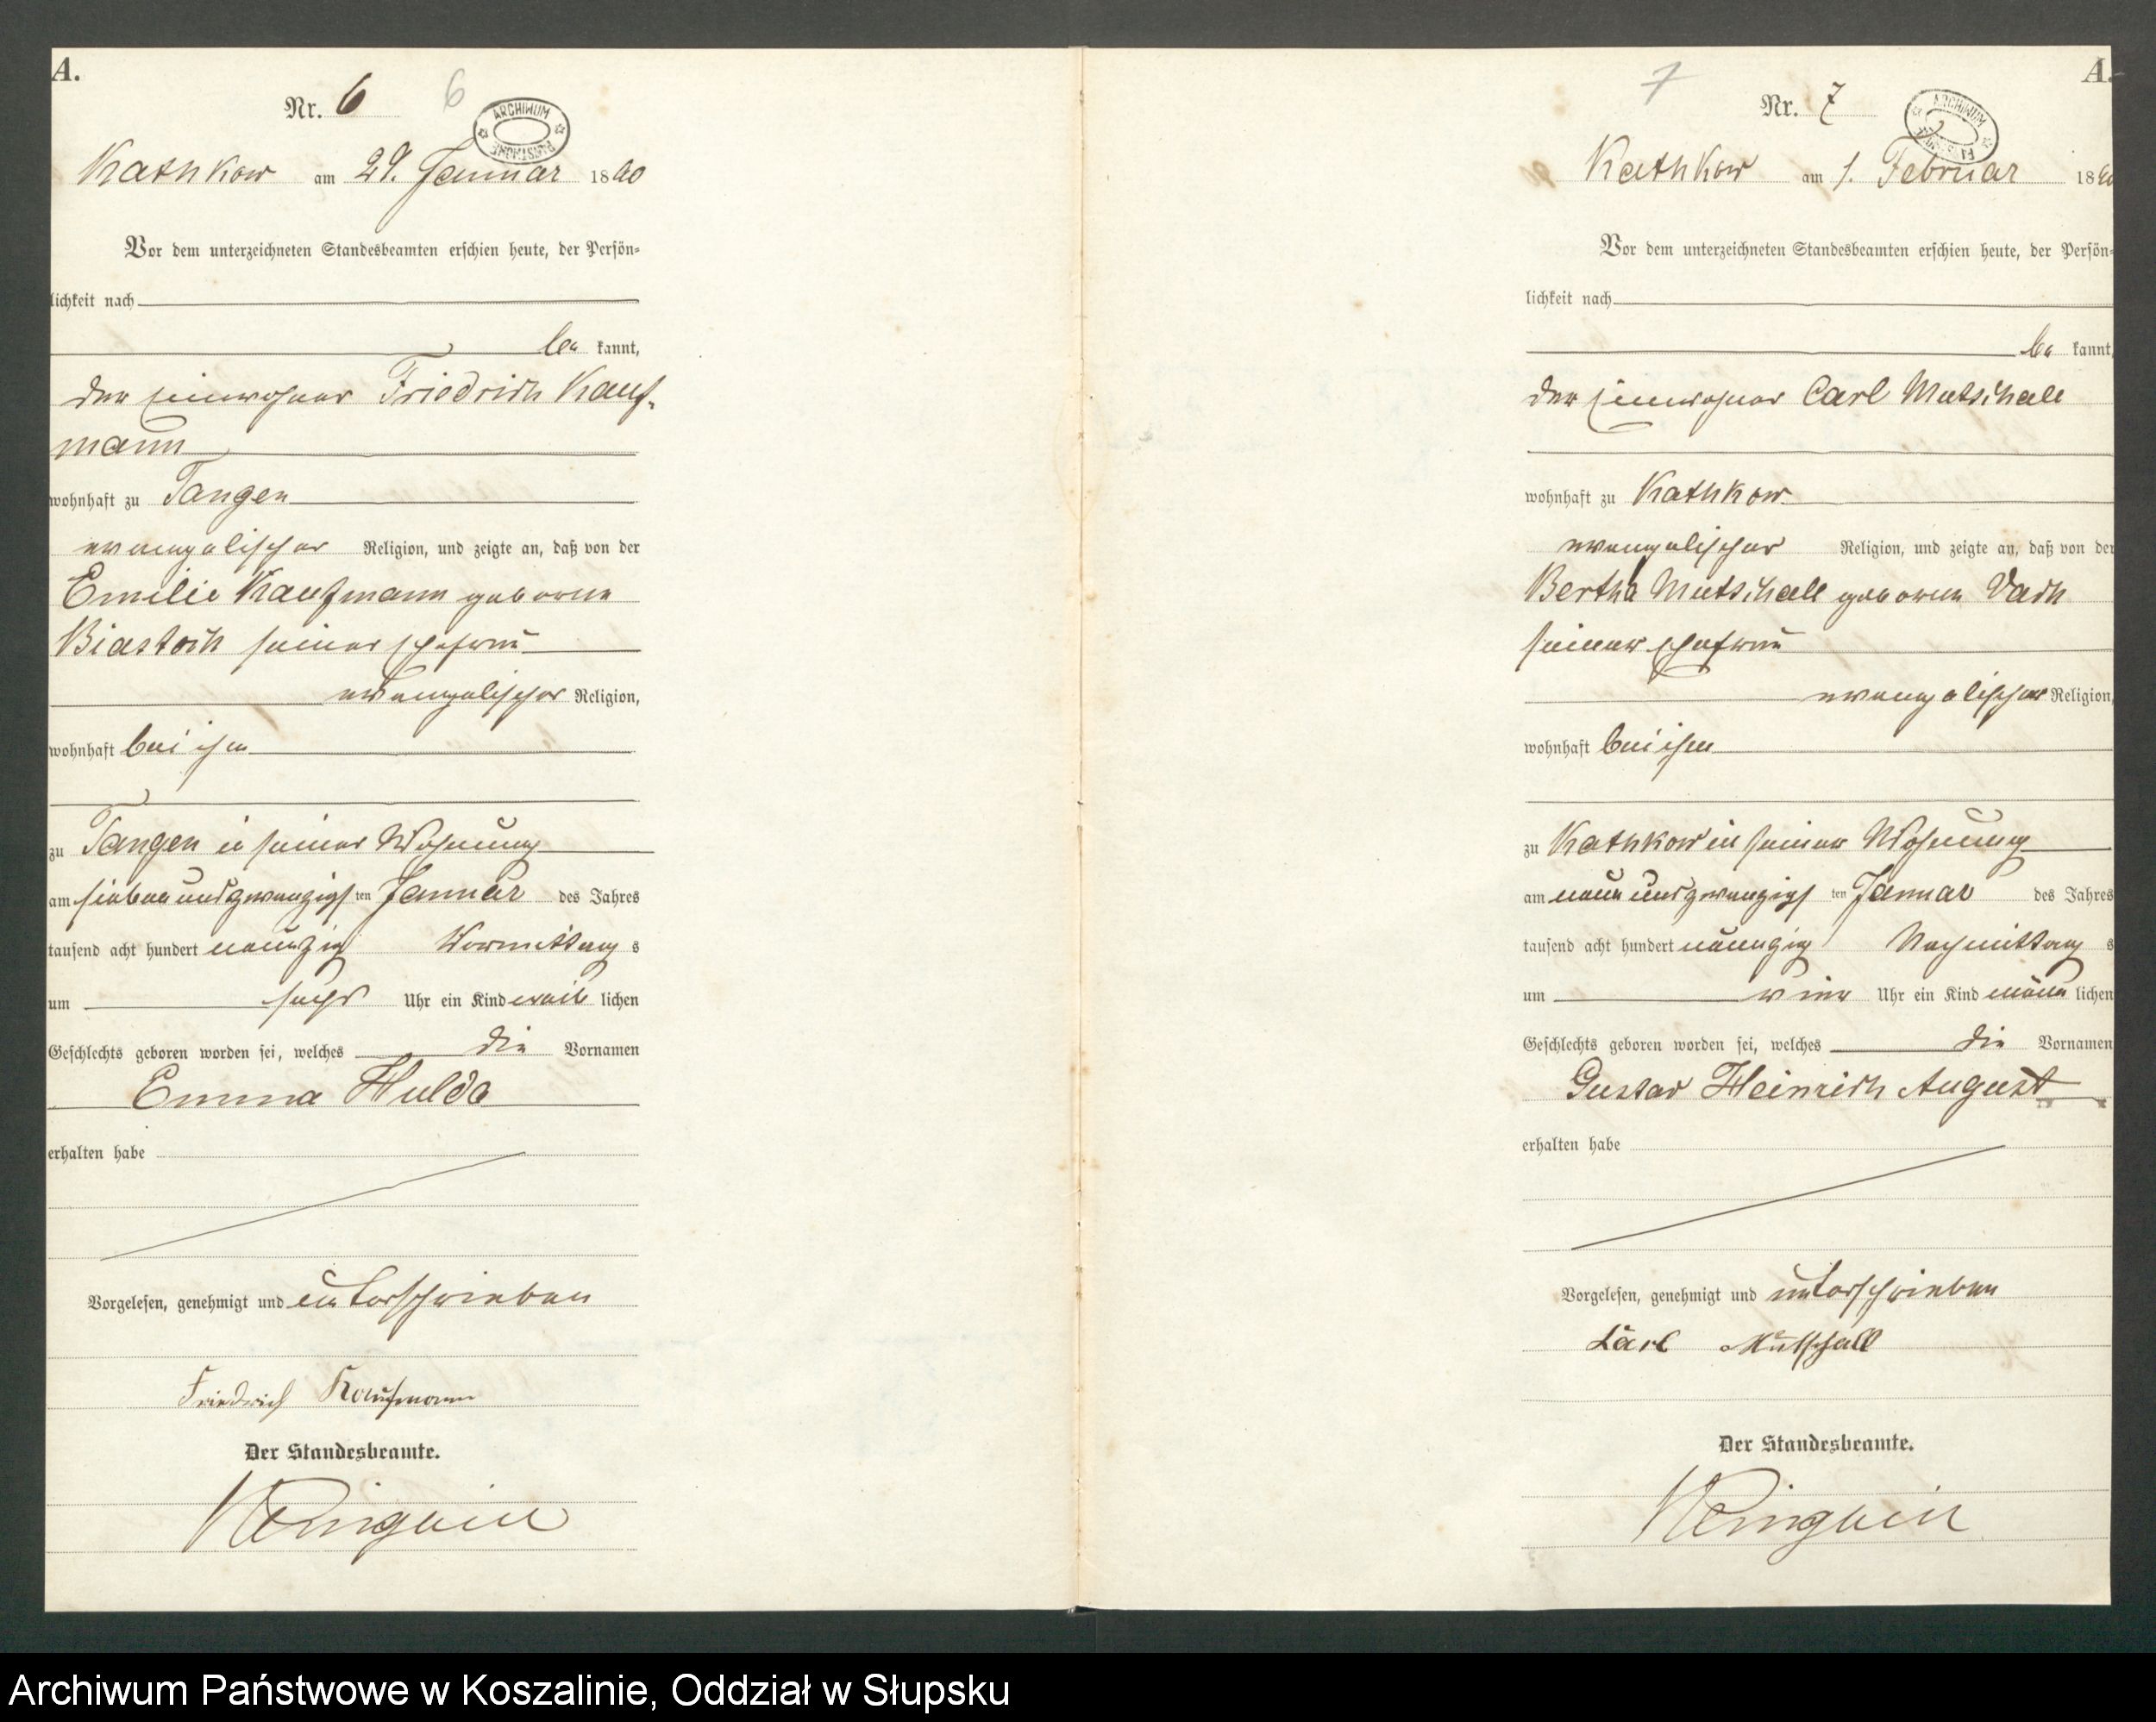 A.
Nr. 6 6
ARCHIWUM PAŃSTWOWE
Kathkow am 29. Januar 1890
Vor dem unterzeichneten Standesbeamten erschien heute, der Persön-
lichkeit nach
be kannt,
der Einwohner Friedrich Kauf-
mann
wohnhaft zu Tangen
evangelischer Religion, und zeigte an, daß von der
Emilie Kaufmann geborene
Biastoch seiner Ehefrau
evangelischer Religion,
wohnhaft bei ihm
zu Tangen in seiner Wohnung
am siebenundzwanzigsten Januar des Jahres
tausend acht hundert neunzig Vormittags
um sechs Uhr ein Kind weiblichen
Geschlechts geboren worden sei, welches die Vornamen
Emma Hulda
erhalten habe
Vorgelesen, genehmigt und unterschrieben
Friedrich Kaufmann
Der Standesbeamte.
A.
7 Nr. 7
ARCHIWUM
Kathkow am 1. Februar 1890
Vor dem unterzeichneten Standesbeamten erschien heute, der Persön-
lichkeit nach
be kannt,
der Einwohner Carl Mutschall
wohnhaft zu Kathkow
evangelischer Religion, und zeigte an, daß von der
Bertha Mutschall geborene Vach
seiner Ehefrau
evangelischer Religion,
wohnhaft bei ihm
zu Kathkow in seiner Wohnung
am neunundzwanzigsten Januar des Jahres
tausend acht hundert neunzig Nachmittags
um vier Uhr ein Kind männlichen
Geschlechts geboren worden sei, welches die Vornamen
Gustav Heinrich August
erhalten habe
Vorgelesen, genehmigt und unterschrieben
Karl Mutschall
Der Standesbeamte.
Archiwum Państwowe w Koszalinie, Oddział w Słupsku